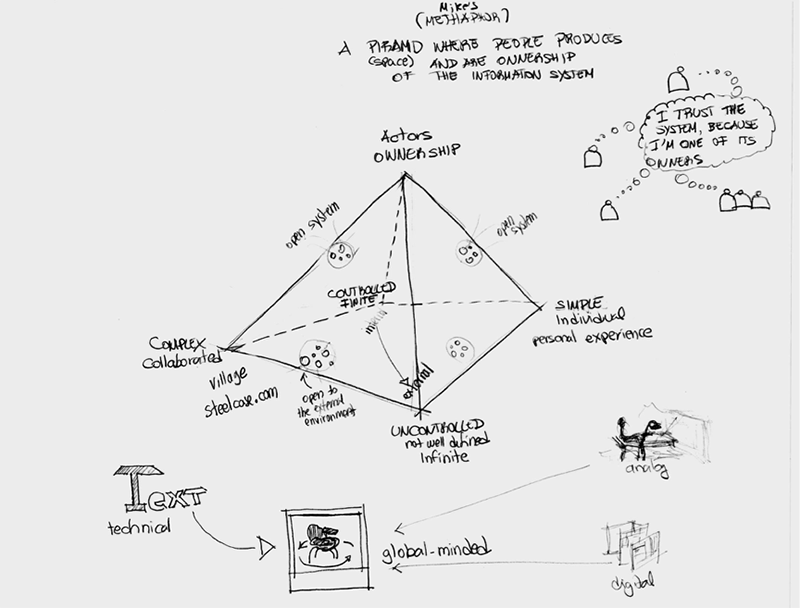 Mike's
(METHAPHOR)
A PIRAMID WHERE PEOPLE PRODUCES
(space) AND ARE ONNERSHIP
OF THE INFORMATION SYSTEM
I TRUST THE
SYSTEM, BECAUSE
I'M ONE OF ITS
ONNERS
Actors
OWNERSHIP
open system
open
system
CONTROLLED
FINITE
SIMPLE
Individual
personal experience
COMPLEX
Collaborated
village
steelcase.com
open to
the external
environment
external
UNCONTROLLED
not well defined
Infinite
analog
Text
technical
global-minded
digital